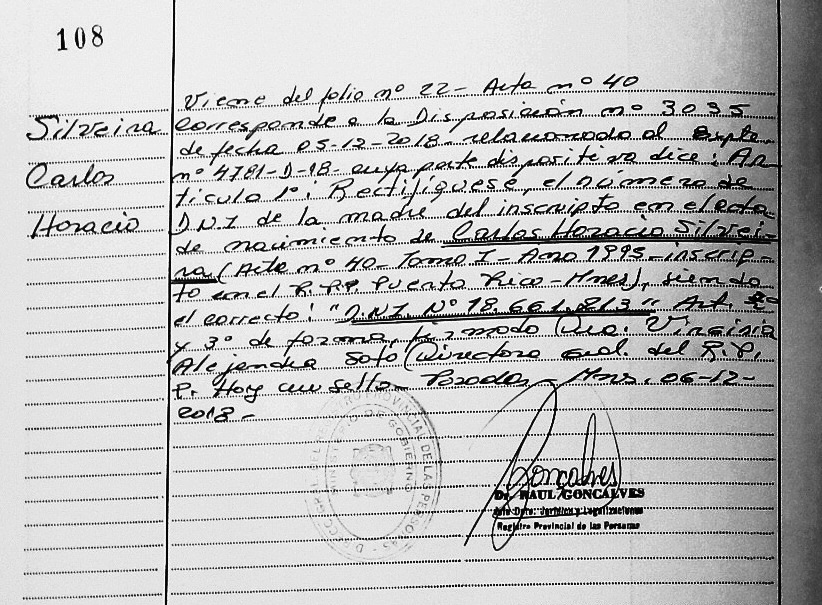 108
Viene del folio nº 22- Acta nº 40
Silveira
Carlos
Horacio
Corresponde a la Disposición nº 3035
de fecha 05-12-2018- relacionado al Expte.
nº 4781-D-18- cuya parte dispositiva dice: Ar
tículo 1º: Rectifíquese, el número de
D.N.I de la madre del inscripto en el acta
de nacimiento de Carlos Horacio Silvei-
ra (Acta nº 40- Tomo I- Año 1995- inscrip-
to en el R.P.P. Puerto Rico-Mnes), siendo
el correcto: "D.N.I. Nº 18.661.813" Art. 2º
y 3º de forma, firmado Dra. Virginia
Alejandra Soto (Directora Gral. del R.P.
P. Hoy un sello- Posadas- Mnes. 06-12-
2018-
MINISTERIO DE GOBIERNO
PROVINCIAL DE LAS PERSONAS
Goncalves
Dr. RAUL GONCALVES
Jefe Dpto. Jurídico y Legalizaciones
Registro Provincial de las Personas